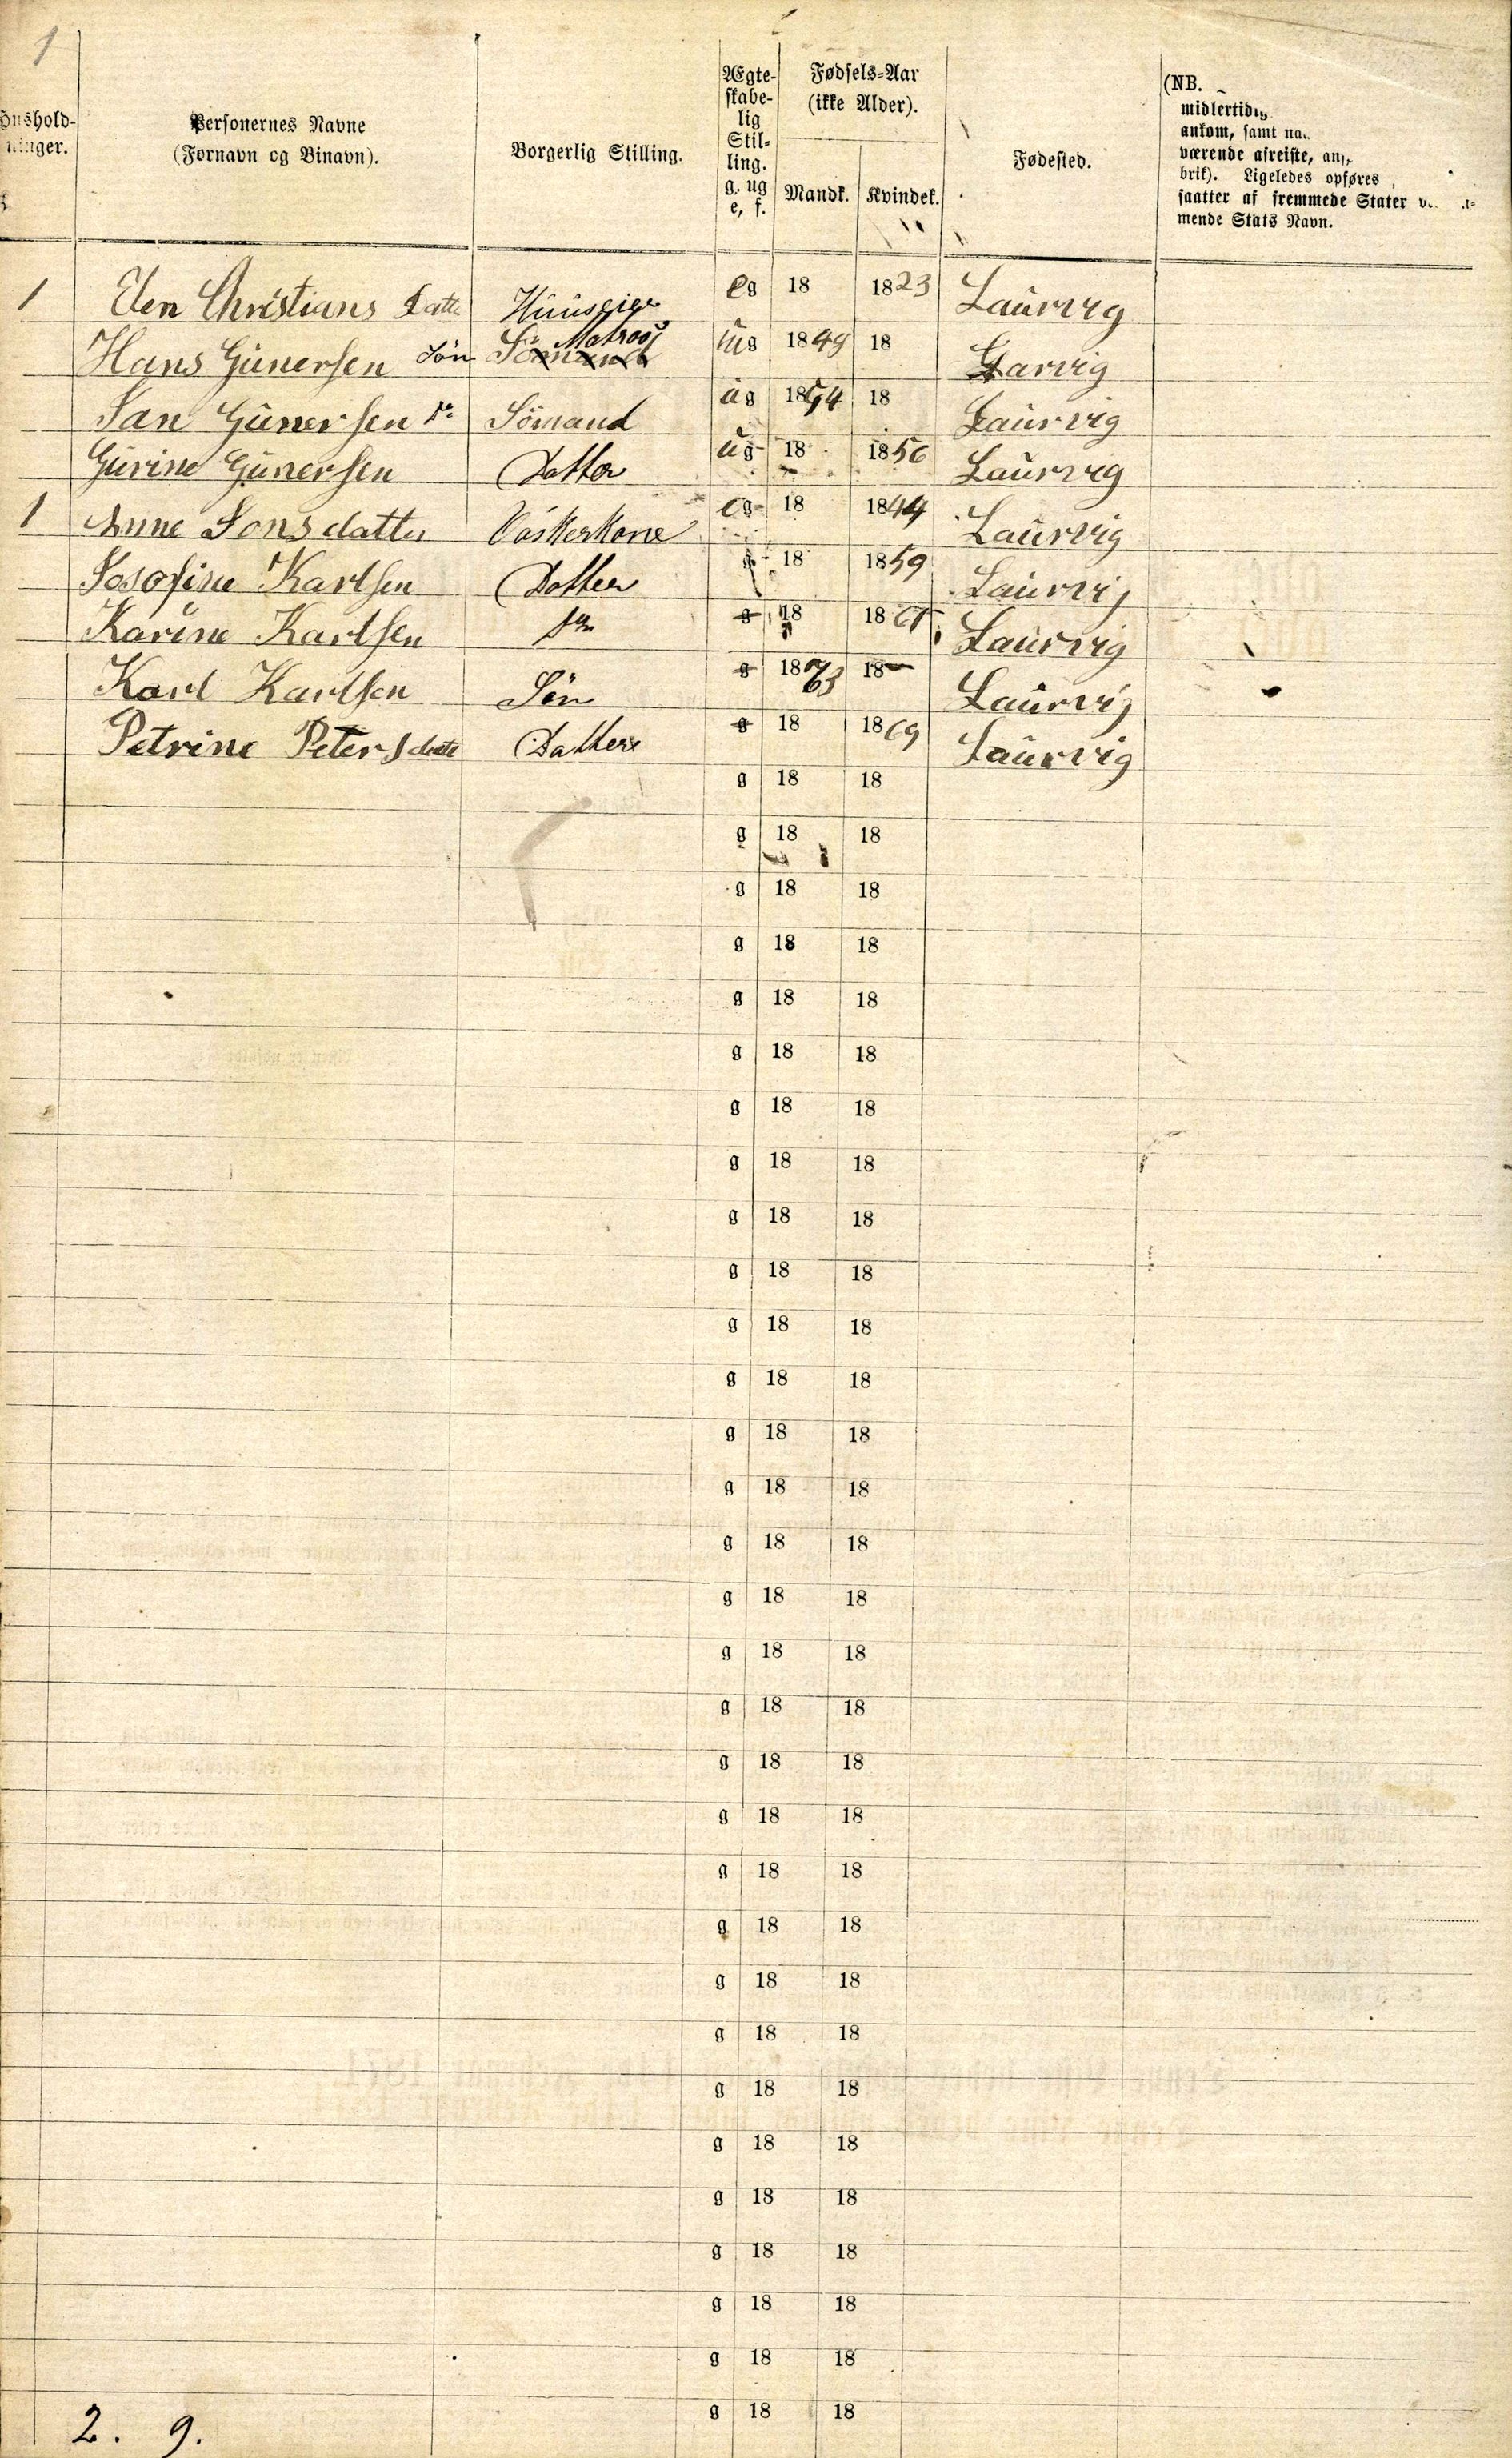 1
Personernes Navne
(Fornavn og Binavn).
Borgerlig Stilling.
Ægte-
skabe-
lig
Stil-
ling.
g. ug
e, f.
Fødsels-Aar
(ikke Alder).
Mandk. Kvindek.
Fødested.
(NB.
ankom, samt
værende afreiste,
brik). Ligeledes opføres
saatter af fremmede Stater
mende Stats Navn.
1 Elen Christians Datte Huuseier eg 18 1823 Laurvig
Hans Gunersen Søn Matros Sömand ug 1849 18 Larvig
Jan Gunersen do Sömand ug 1854 18 Laurvig
Gurine Gunersen Datter ug 18 1856 Laurvig
1 Anne Jonsdatter Vaskerkone eg 18 1844 Laurvig
Josofine Karlsen Datter g 18 1859 Laurvig
Karine Karlsen do g 18 1861 Laurvig
Karl Karlsen Sön g 1863 18 Laurvig
Petrine Petersdatte Datter g 18 1869 Laurvig
g 18 18
g 18 18
g 18 18
g 18 18
g 18 18
g 18 18
g 18 18
g 18 18
g 18 18
g 18 18
g 18 18
g 18 18
g 18 18
g 18 18
g 18 18
g 18 18
g 18 18
g 18 18
g 18 18
g 18 18
g 18 18
g 18 18
g 18 18
g 18 18
g 18 18
g 18 18
g 18 18
g 18 18
g 18 18
g 18 18
g 18 18
2. 9.